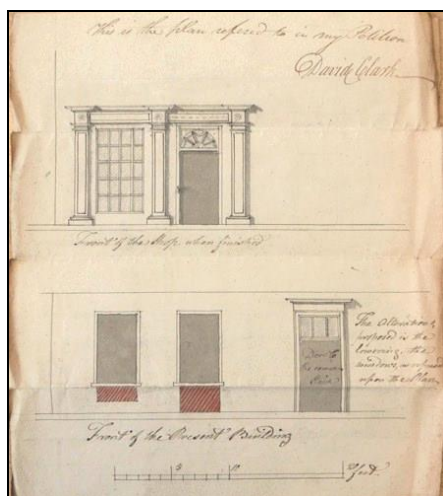 This is the plan refered to in my Petition
David Clark
Front of the Shop when finished
Door to
the common
Stair
The Alteration
proposed is the
lowering the
windows, as
upon the Plan
Front of the Present Building
5
10
20 feet